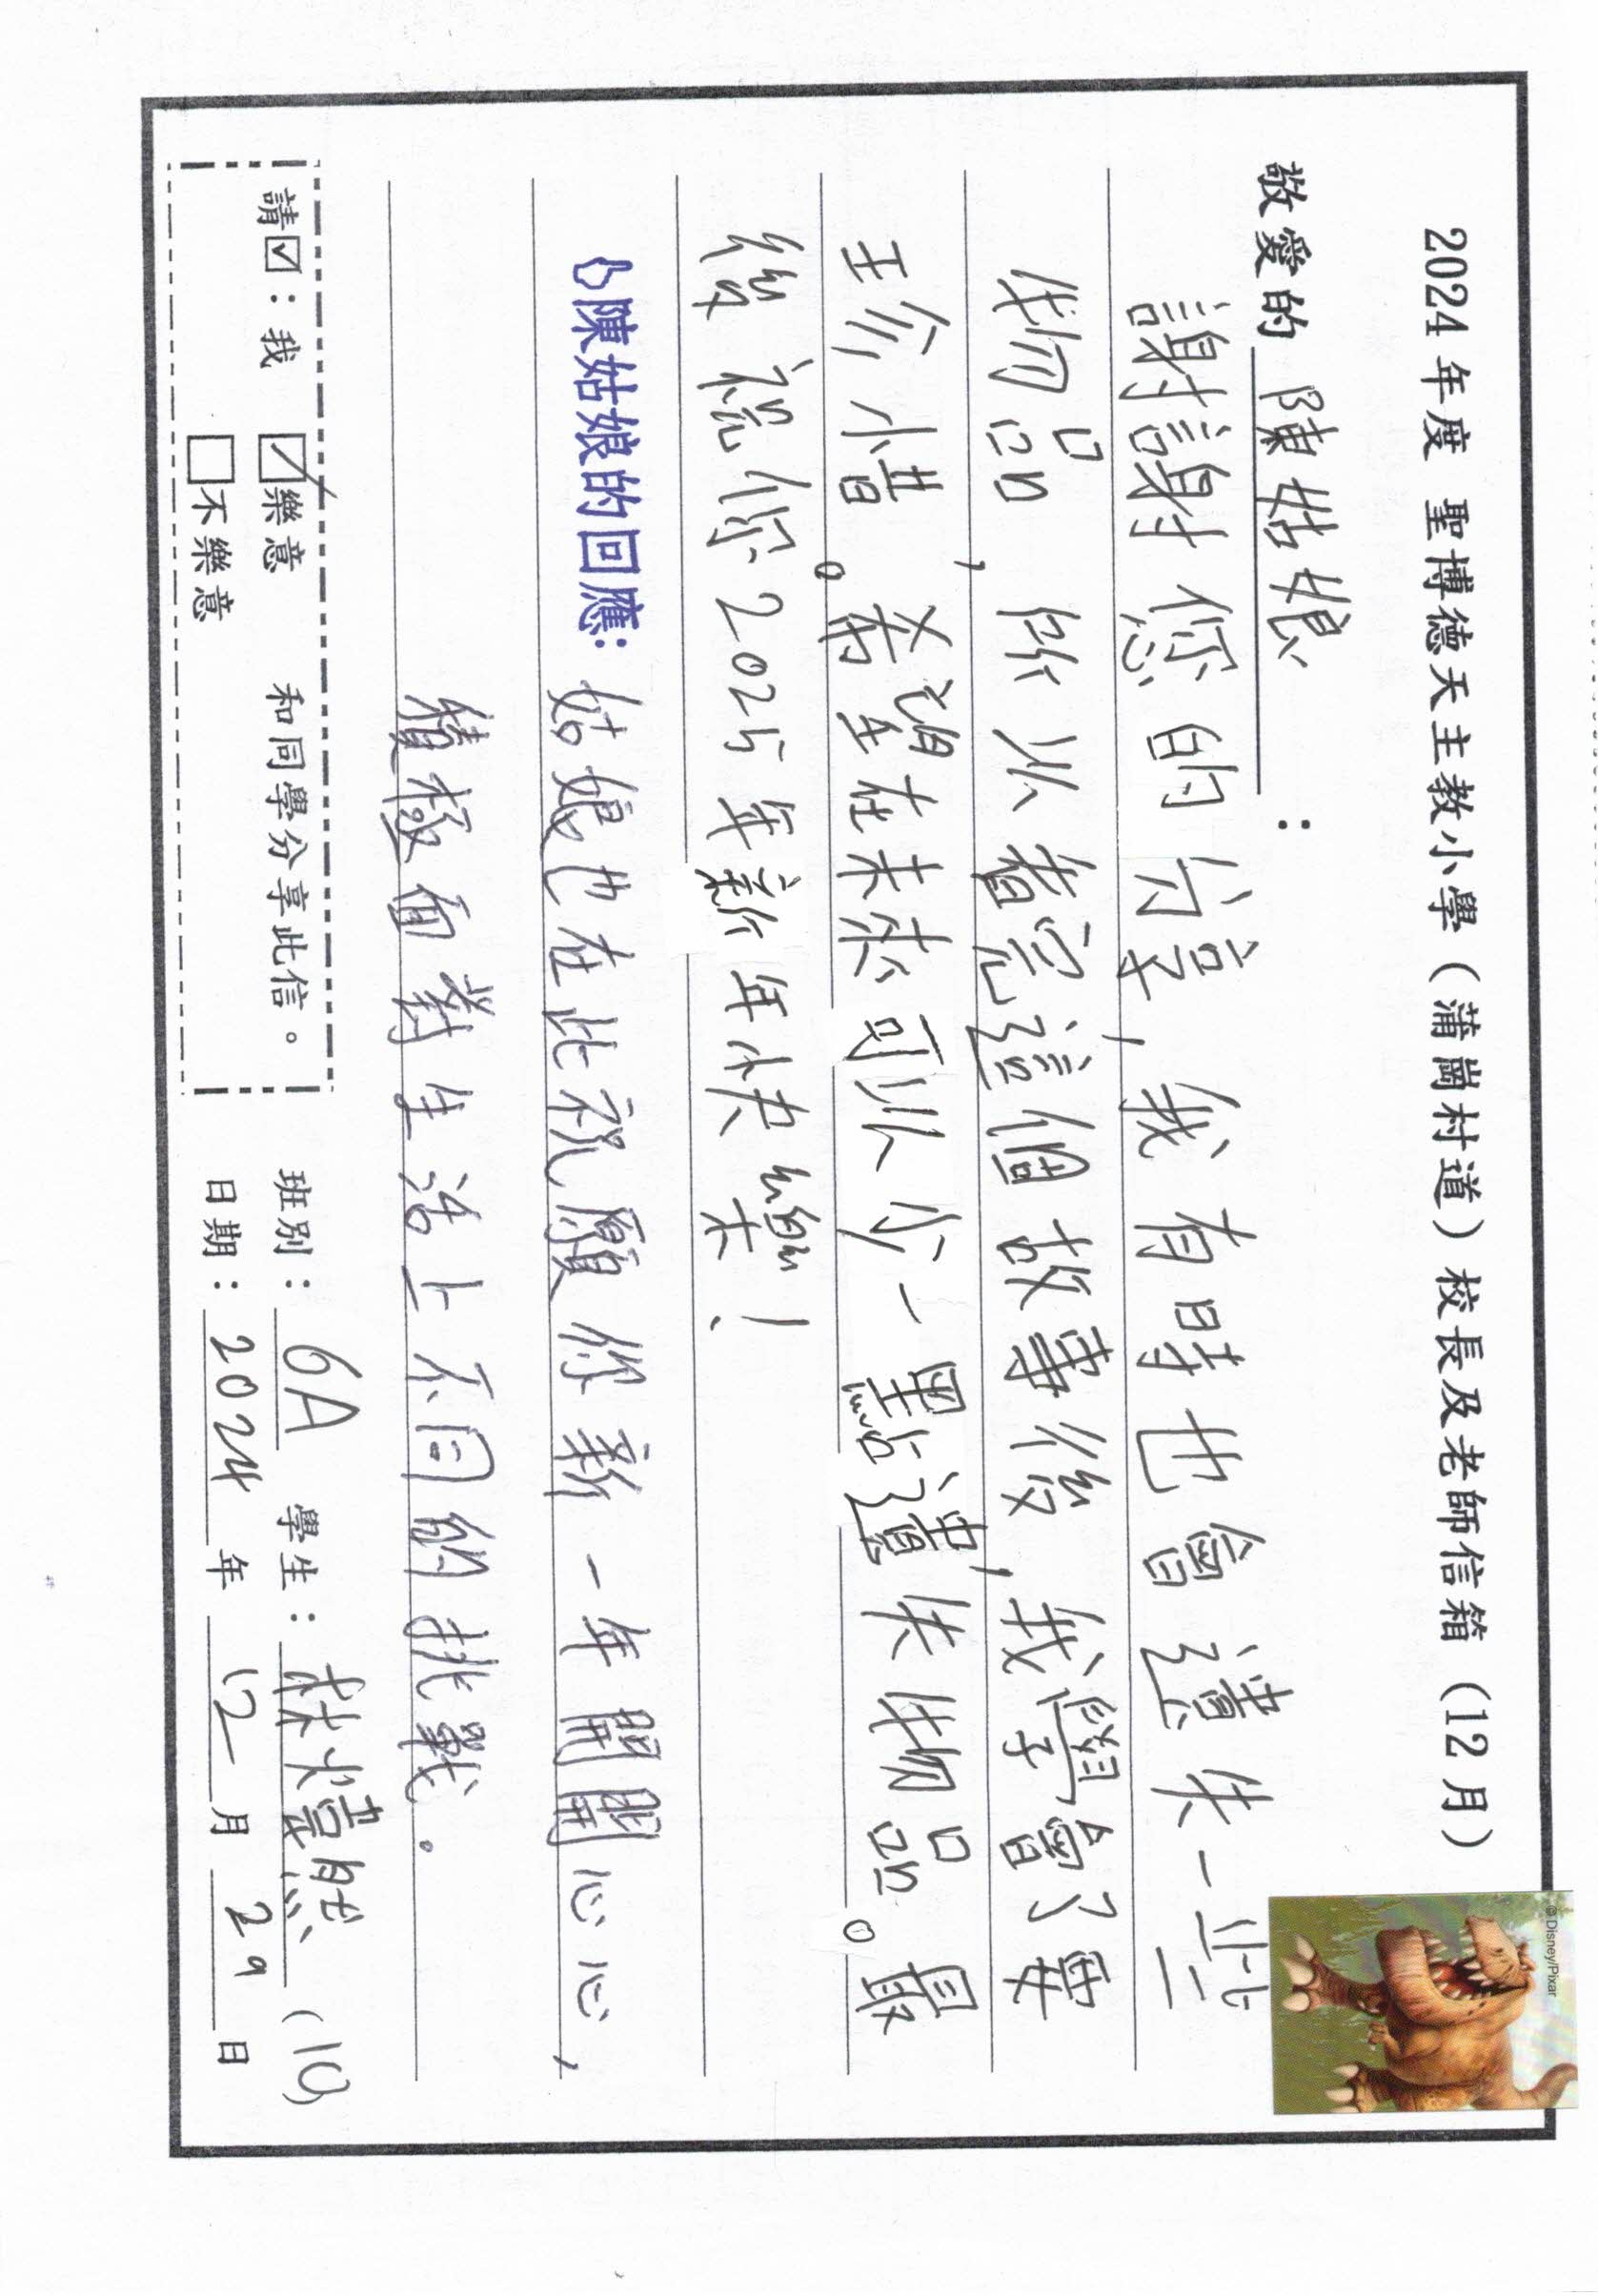 2024 年度 聖博德天主教小學（蒲崗村道）校長及老師信箱（12 月）
©Disney/Pixar
敬愛的 陳姑娘：
謝謝您的分享，我有時也會遺失一些
物品，所以看完這個故事後，我學會了要
珍惜。希望在未來可以少一點遺失物品。最
後祝你2025年新年快樂！
陳姑娘的回應：姑娘也在此祝願你新一年開開心心，
積極面對生活上不同的挑戰。
請☑：我 ☑樂意 和同學分享此信。
□不樂意
班別：6A 學生：林熺然 (10)
日期：2024 年 12 月 29 日